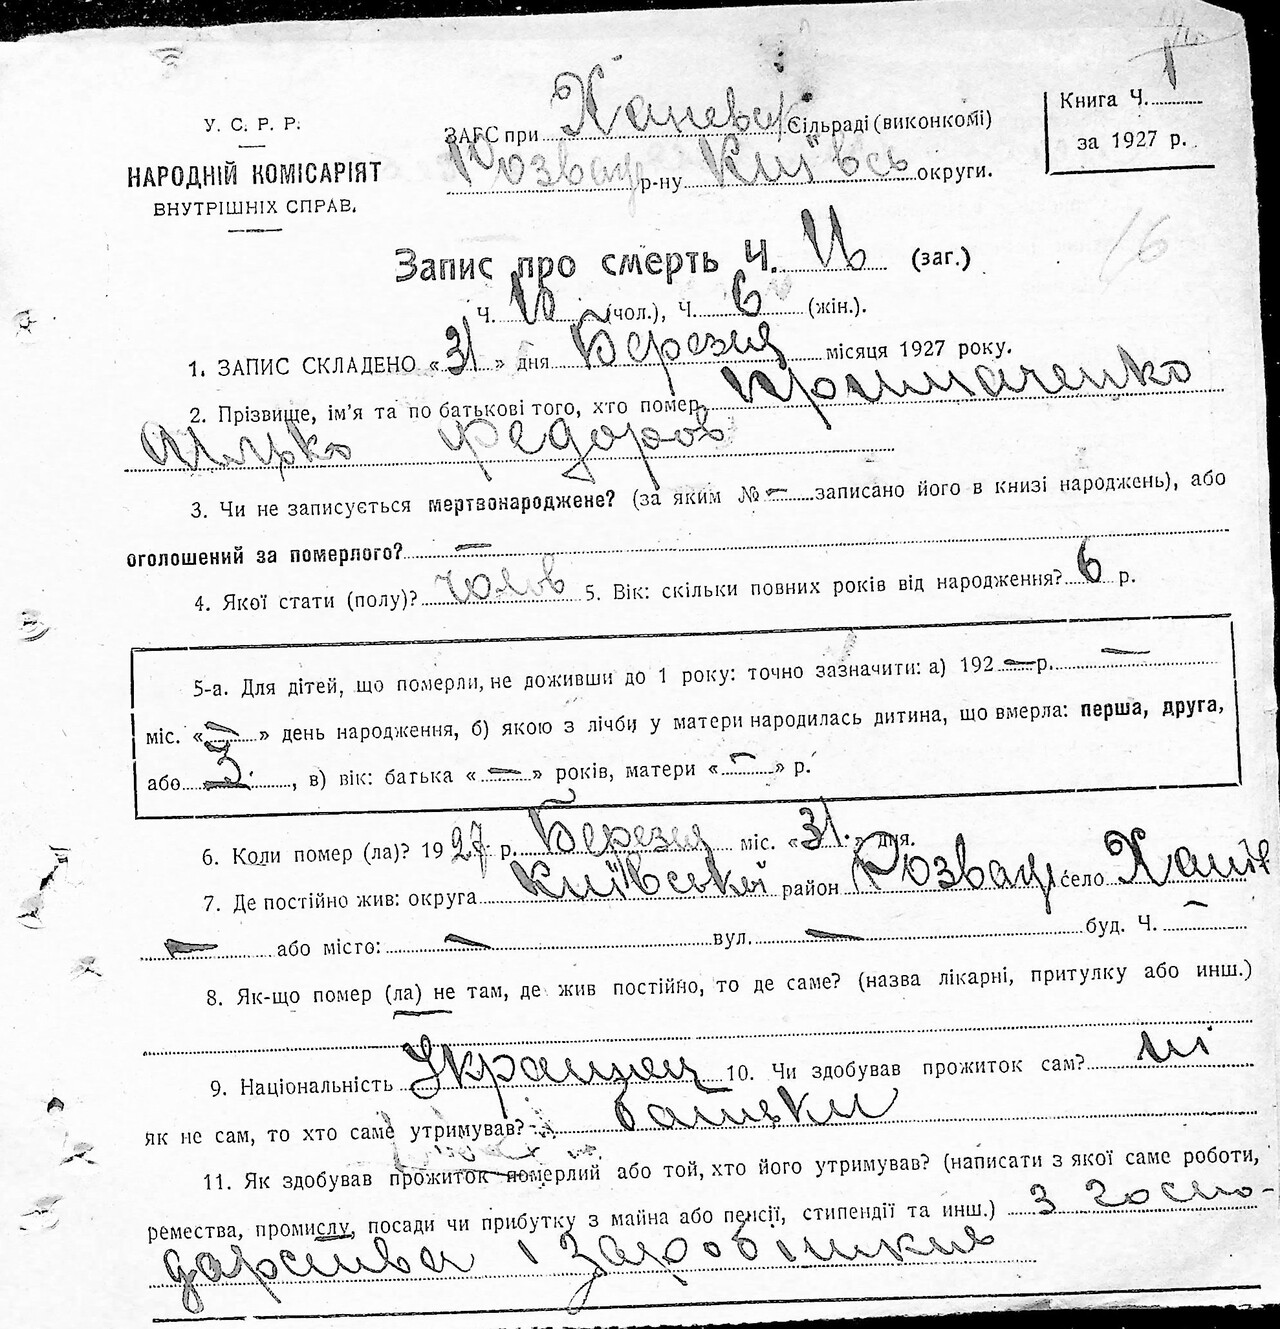 У. С. Р. Р.
НАРОДНІЙ КОМІСАРІЯТ
ВНУТРІШНІХ СПРАВ.
ЗАГС при Сільраді (виконкомі)
Розваж р-ну Київсь округи.
Книга Ч. 1
за 1927 р.
16
Запис про смерть Ч. 16 (заг.)
Ч. 10 (чол.), Ч. 6 (жін.).
1. ЗАПИС СКЛАДЕНО «31» дня Березня місяця 1927 року.
2. Прізвище, ім'я та по батькові того, хто помер
Федоров
3. Чи не записується мертвонароджене? (за яким № – записано його в книзі народжень), або
оголошений за померлого? –
4. Якої стати (полу)? чолов 5. Вік: скільки повних років від народження? 6 р.
5-а. Для дітей, що померли, не доживши до 1 року: точно зазначити: а) 192 – р. –
міс. «–» день народження, б) якою з лічби у матери народилась дитина, що вмерла: перша, друга,
або 3., в) вік: батька «–» років, матери «–» р.
6. Коли помер (ла)? 1927 р. Березня міс. «31» дня.
7. Де постійно жив: округа Київської район Розваж село
– або місто: – вул. – буд. Ч. –
8. Як-що помер (ла) не там, де жив постійно, то де саме? (назва лікарні, притулку або инш.)
9. Національність Українец 10. Чи здобував прожиток сам? ні
як не сам, то хто саме утримував? батьки
11. Як здобував прожиток померлий або той, хто його утримував? (написати з якої саме роботи,
ремества, промислу, посади чи прибутку з майна або пенсії, стипендії та инш.) З госпо-
дарства і заробітків